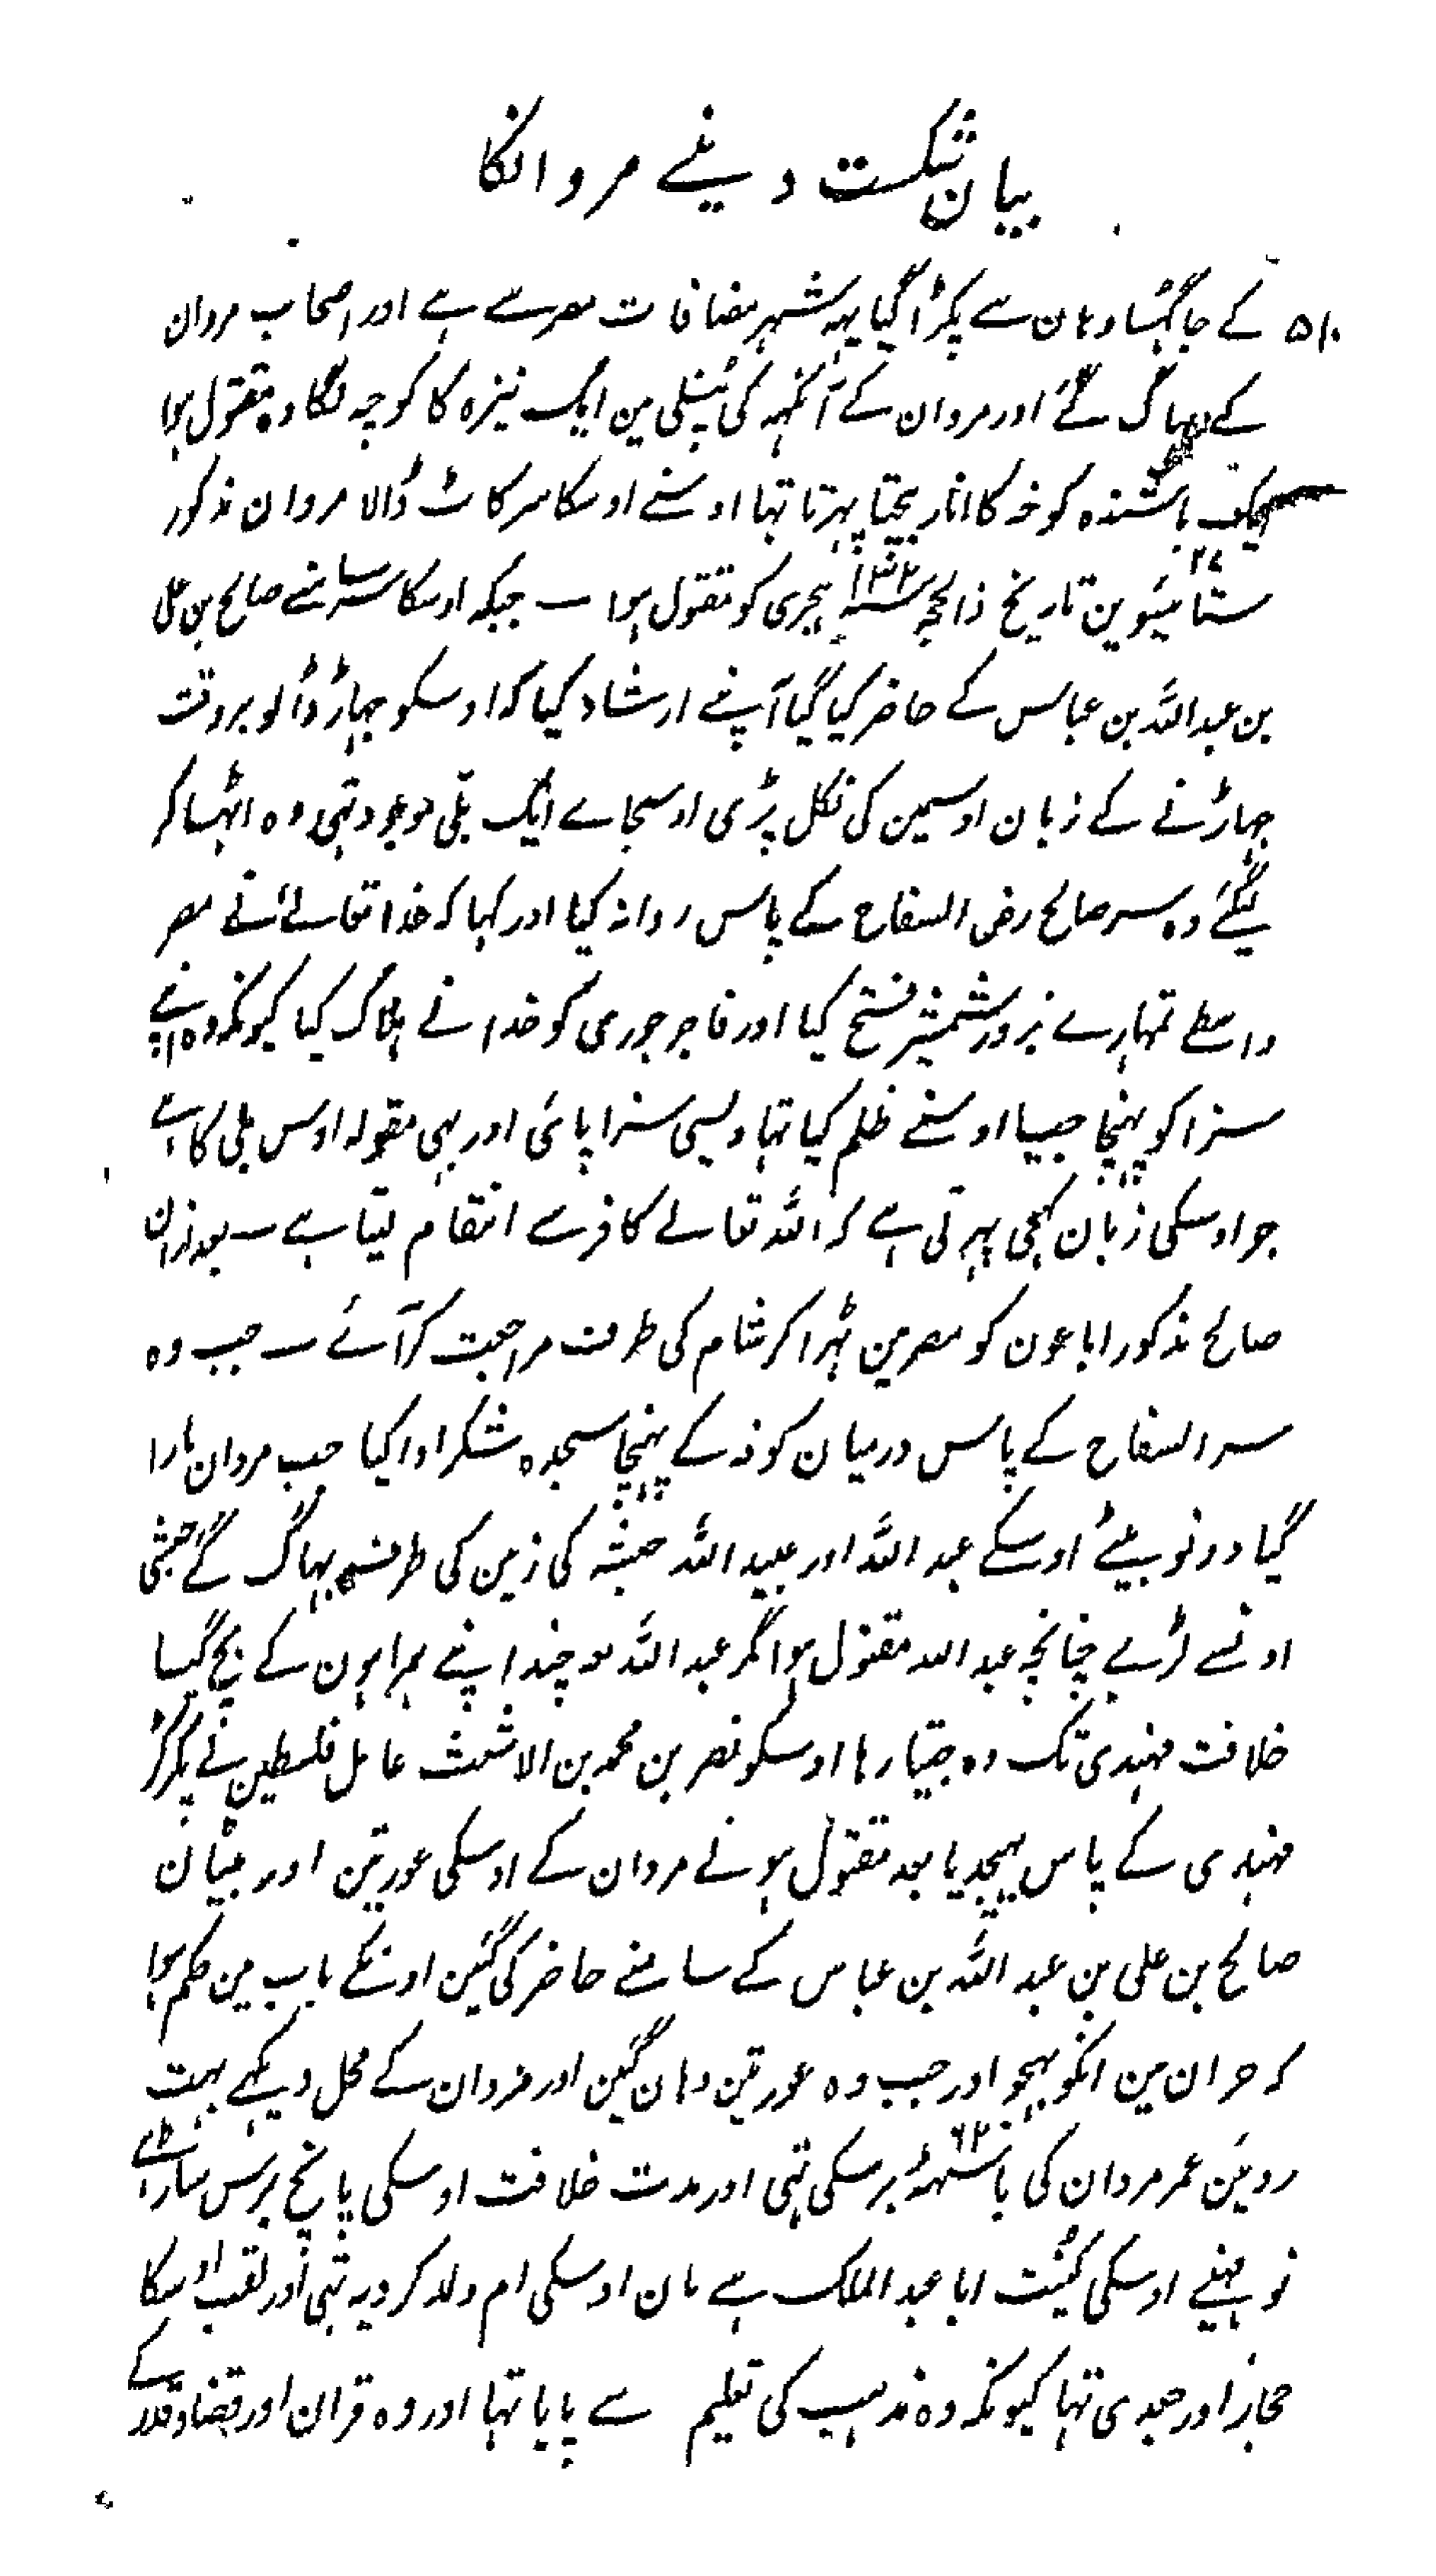 بیان شکست دینے مروانکا
۵۱۰ کے جا گہسا وہان سے پکڑا گیا یہہ شہر مضافات مصر سے ہے اور اصحاب مروان
کے بہاگ گئے اور مروان کے آنکہہ کی پتلی مین ایک نیزہ کا کوچہ لگا وہ مقتول ہوا
ایک باشندہ کوفہ کا انار بیچتا پہرتا تہا اوسنے اوسکا سر کاٹ ڈالا مروان مذکور
ستائیسوین ۲۷ تاریخ ذالحجہ سنہ ۱۳۲ ہجری کو مقتول ہوا ۔ جبکہ اوسکا سر سامنے صالح بن علی
بن عبد اللہ بن عباس کے حاضر کیا گیا آپنے ارشاد کیا کہ اوسکو جہاڑ ڈالو بروقت
جہاڑنے کے زبان اوسمین کی نکل پڑی اوسجاے ایک بلی موجود تہی وہ اٹہا کر
لیگئے وہ سر صالح رضی السفاح کے پاس روانہ کیا اور کہا کہ خدا تعالےٰ نے مصر
واسطے تمہارے بزور شمشیر فتح کیا اور فاجر جوری کو خدا نے ہلاک کیا کیونکہ وہ اپنے
سزا کو پہنچا جیسا اوسنے ظلم کیا تہا ویسی سزا پائی اور یہی مقولہ اوس بلی کا ہے
جو اوسکی زبان کہینچی پہرتی ہے کہ اللہ تعالے کافر سے انتقام لیتا ہے ۔ بعد ازان
صالح مذکور ابا عون کو مصر مین ٹہرا کر شام کی طرف مراجعت کر آئے ۔ جب وہ
سر السفاح کے پاس درمیان کوفہ کے پہنچا سجدہ شکر ادا کیا جب مروان مارا
گیا دونو بیٹے اوسکے عبد اللہ اور عبید اللہ حبشہ کی زمین کی طرف بہاگ گئے حبشی
اونسے لڑے چنانچہ عبد اللہ مقتول ہوا مگر عبد اللہ معہ چند اپنے ہمراہون کے بچ گیا
خلافت مہندی تک وہ جیتا رہا اوسکو نصر بن محمد بن الاشعث عامل فلسطین نے پکڑ کر
مہندی کے پاس بہیجدیا بعد مقتول ہونے مروان کے اوسکی عورتین اور بیٹیان
صالح بن علی بن عبد اللہ بن عباس کے سامنے حاضر کی گئین اونکے باب مین حکم ہوا
کہ حران مین انکو بہیجو اور جب وہ عورتین وہان گئین اور مروان کے محل دیکہے بہت
روئین عمر مروان کی باسٹہہ ۶۲ برسکی تہی اور مدت خلافت اوسکی پانچ برس ساڑہے
نو مہینے اوسکی کنیت ابا عبد الملک ہے مان اوسکی ام ولد کردیہ تہی اور لقب اوسکا
حمار اور جعدی تہا کیونکہ وہ مذہب کی تعلیم سے پایا تہا اور وہ قران اور قضا و قدر کے